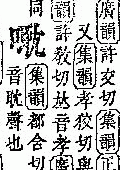 廣韻許交切集韻正
又集韻孝狡切與
韻許敎切𠀤音孝廣
同
集韻都含切
音耽聲也